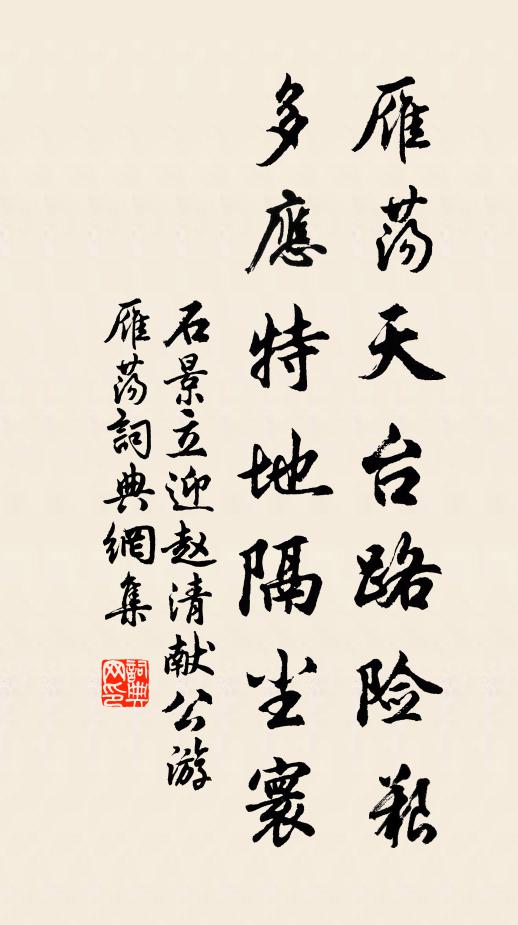 雁荡天台路险艱
多應特地隔尘寰
石景立迎赵清献公游
雁荡詞典網集
詞典网印